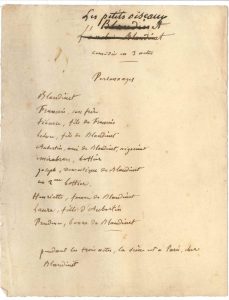 Les petits oiseaux
Blandinet
Blandinet
comédie en 3 actes
Personnages
Blandinet
François, son frère
Tiburce, fils de François
Léon, fils de Blandinet
Aubertin, ami de Blandinet, négociant
Mizabran, bottier
Joseph, domestique de Blandinet
un 2me bottier
Henriette, femme de Blandinet
Laure, fille d'Aubertin
Prudence, bonne de Blandinet
pendant les trois actes, la scène est à Paris, chez
Blandinet